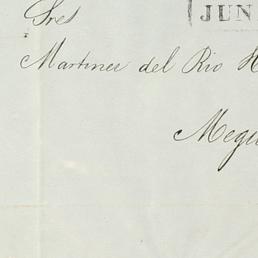 JUN
Sres
Martinez del Rio H
Megi